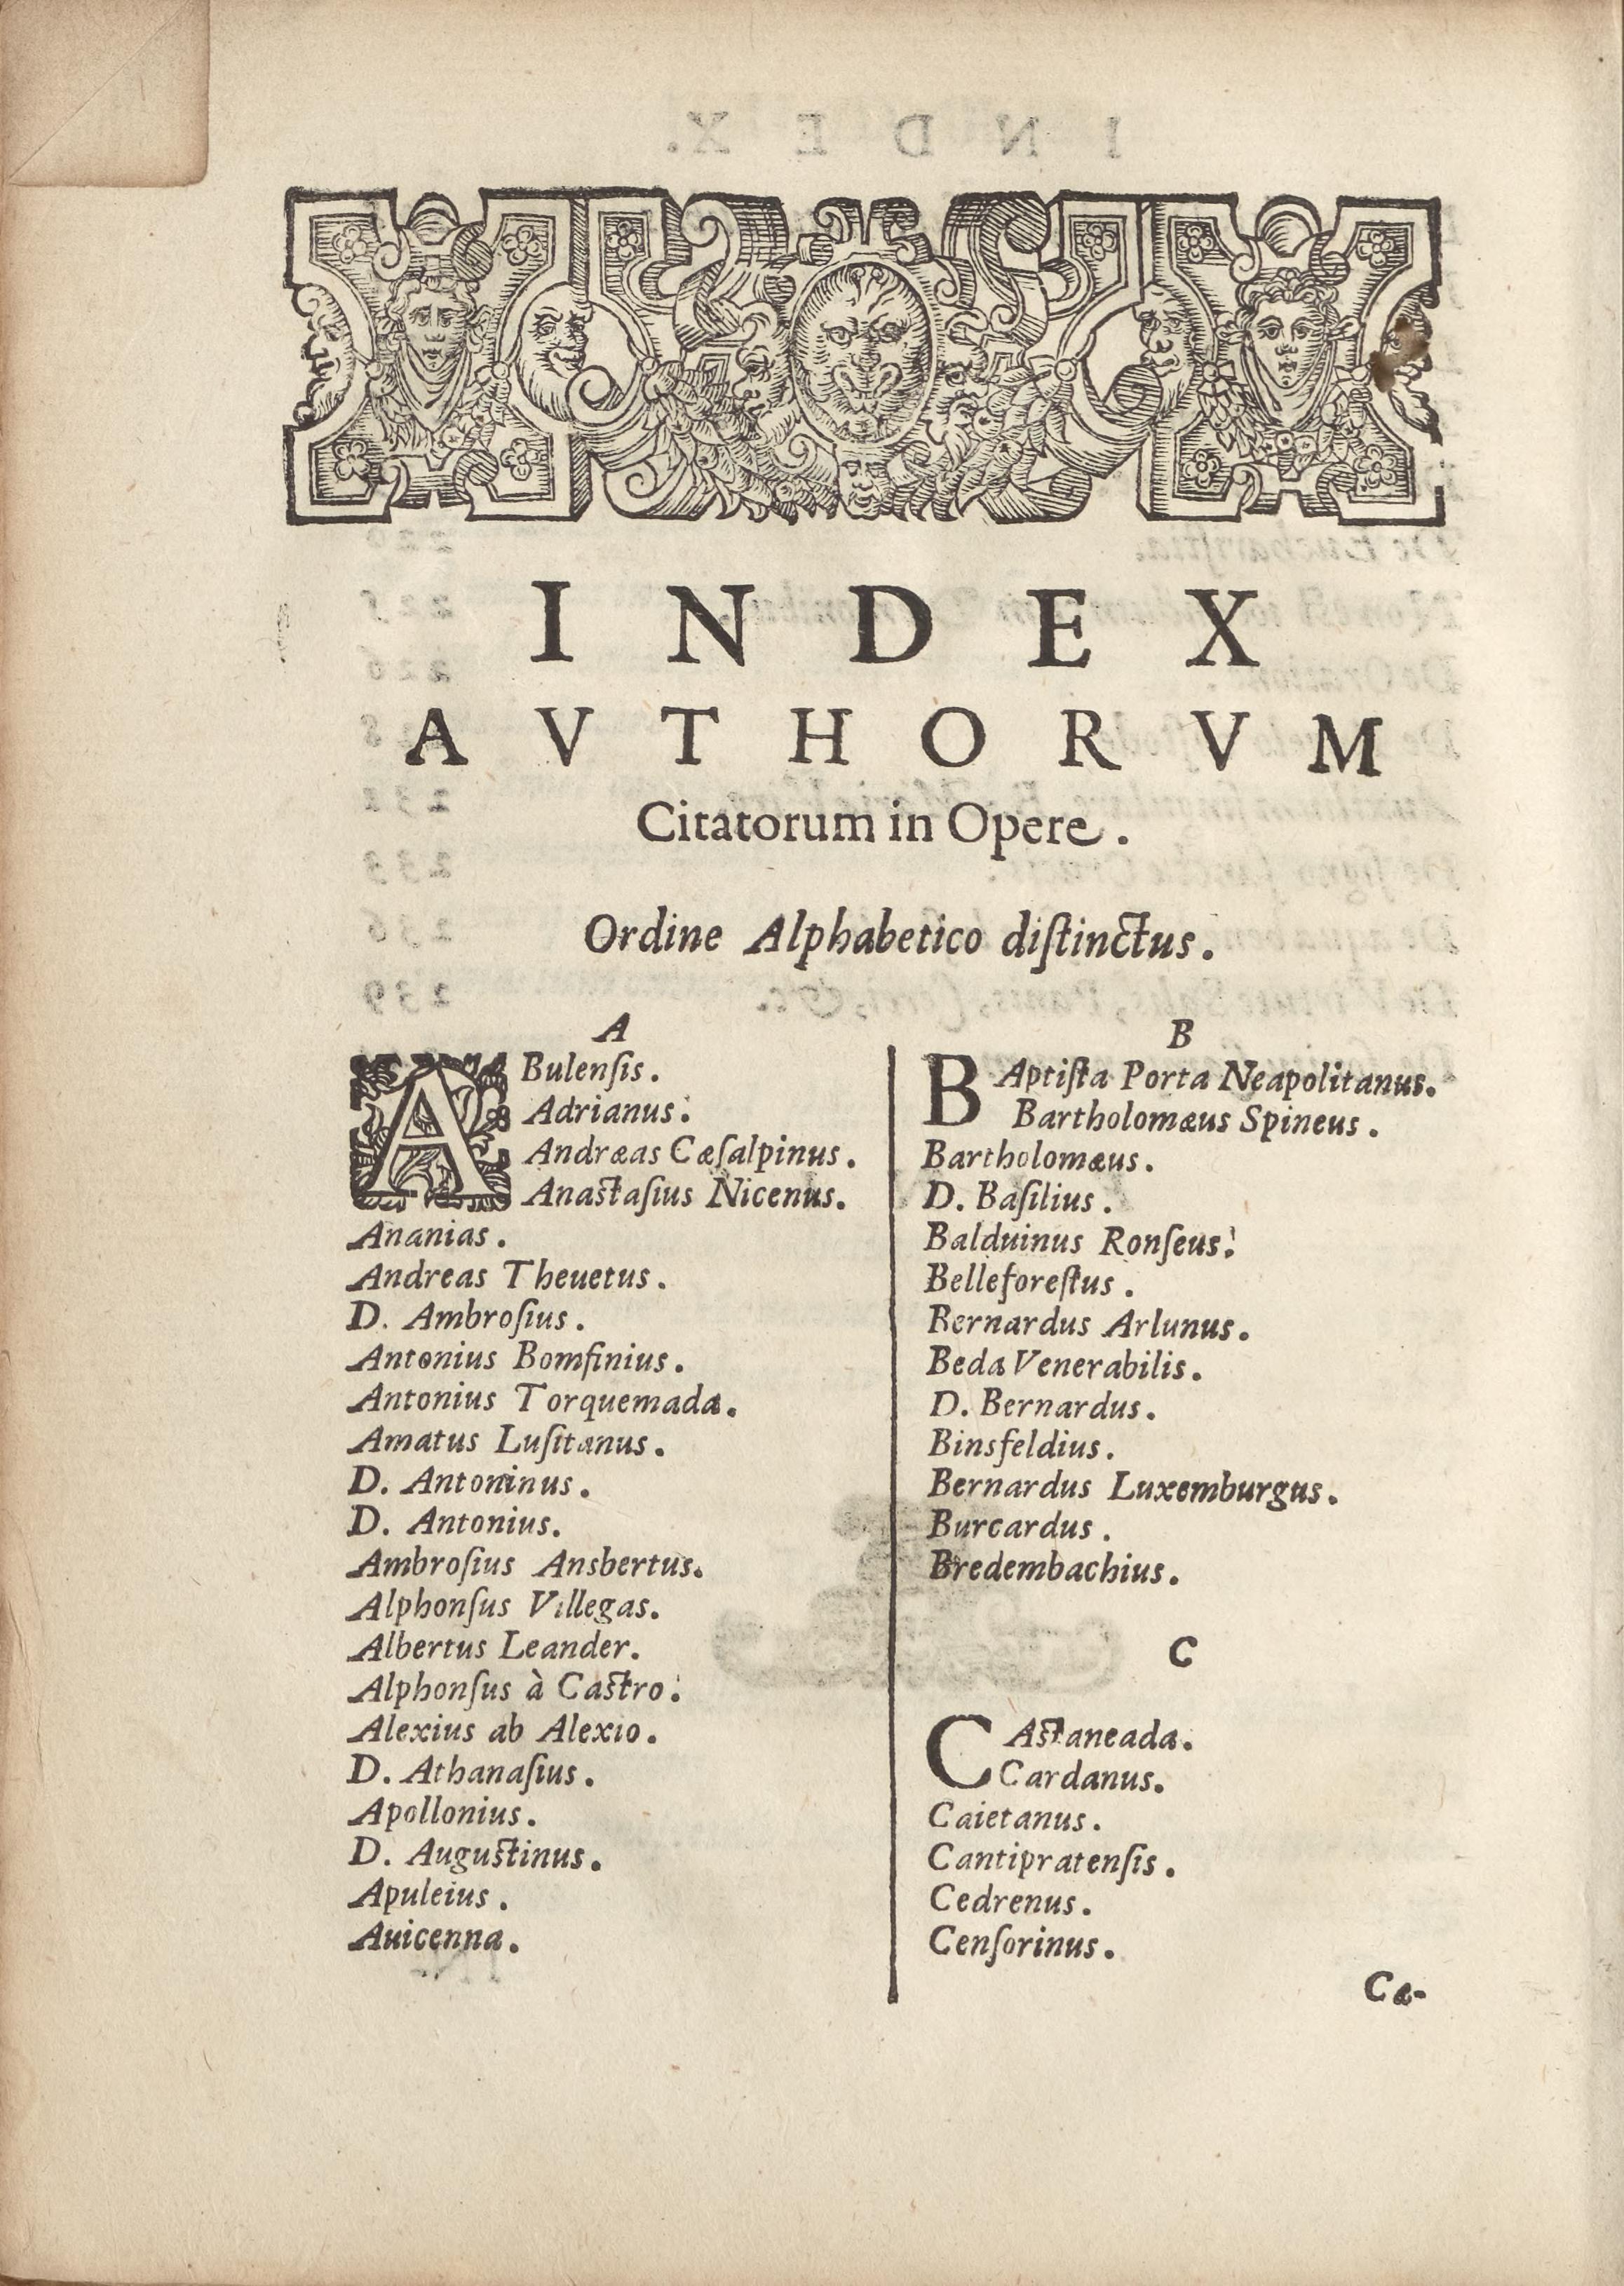 INDEX
AVTHORVM
Citatorum in Opere.
Ordine Alphabetico diſtinctus.
A
ABulenſis.
Adrianus.
Andræas Cæſalpinus.
Anaſtaſius Nicenus.
Ananias.
Andreas Theuetus.
D. Ambroſius.
Antonius Bomfinius.
Antonius Torquemada.
Amatus Luſitanus.
D. Antoninus.
D. Antonius.
Ambroſius Ansbertus.
Alphonſus Villegas.
Albertus Leander.
Alphonſus à Caſtro.
Alexius ab Alexio.
D. Athanaſius.
Apollonius.
D. Auguſtinus.
Apuleius.
Auicenna.
B
BAptiſta Porta Neapolitanus.
Bartholomæus Spineus.
Bartholomæus.
D. Baſilius.
Balduinus Ronſeus.
Belleforeſtus.
Bernardus Arlunus.
Beda Venerabilis.
D. Bernardus.
Binsfeldius.
Bernardus Luxemburgus.
Burcardus.
Bredembachius.
C
CAſtaneada.
Cardanus.
Caietanus.
Cantipratenſis.
Cedrenus.
Cenſorinus.